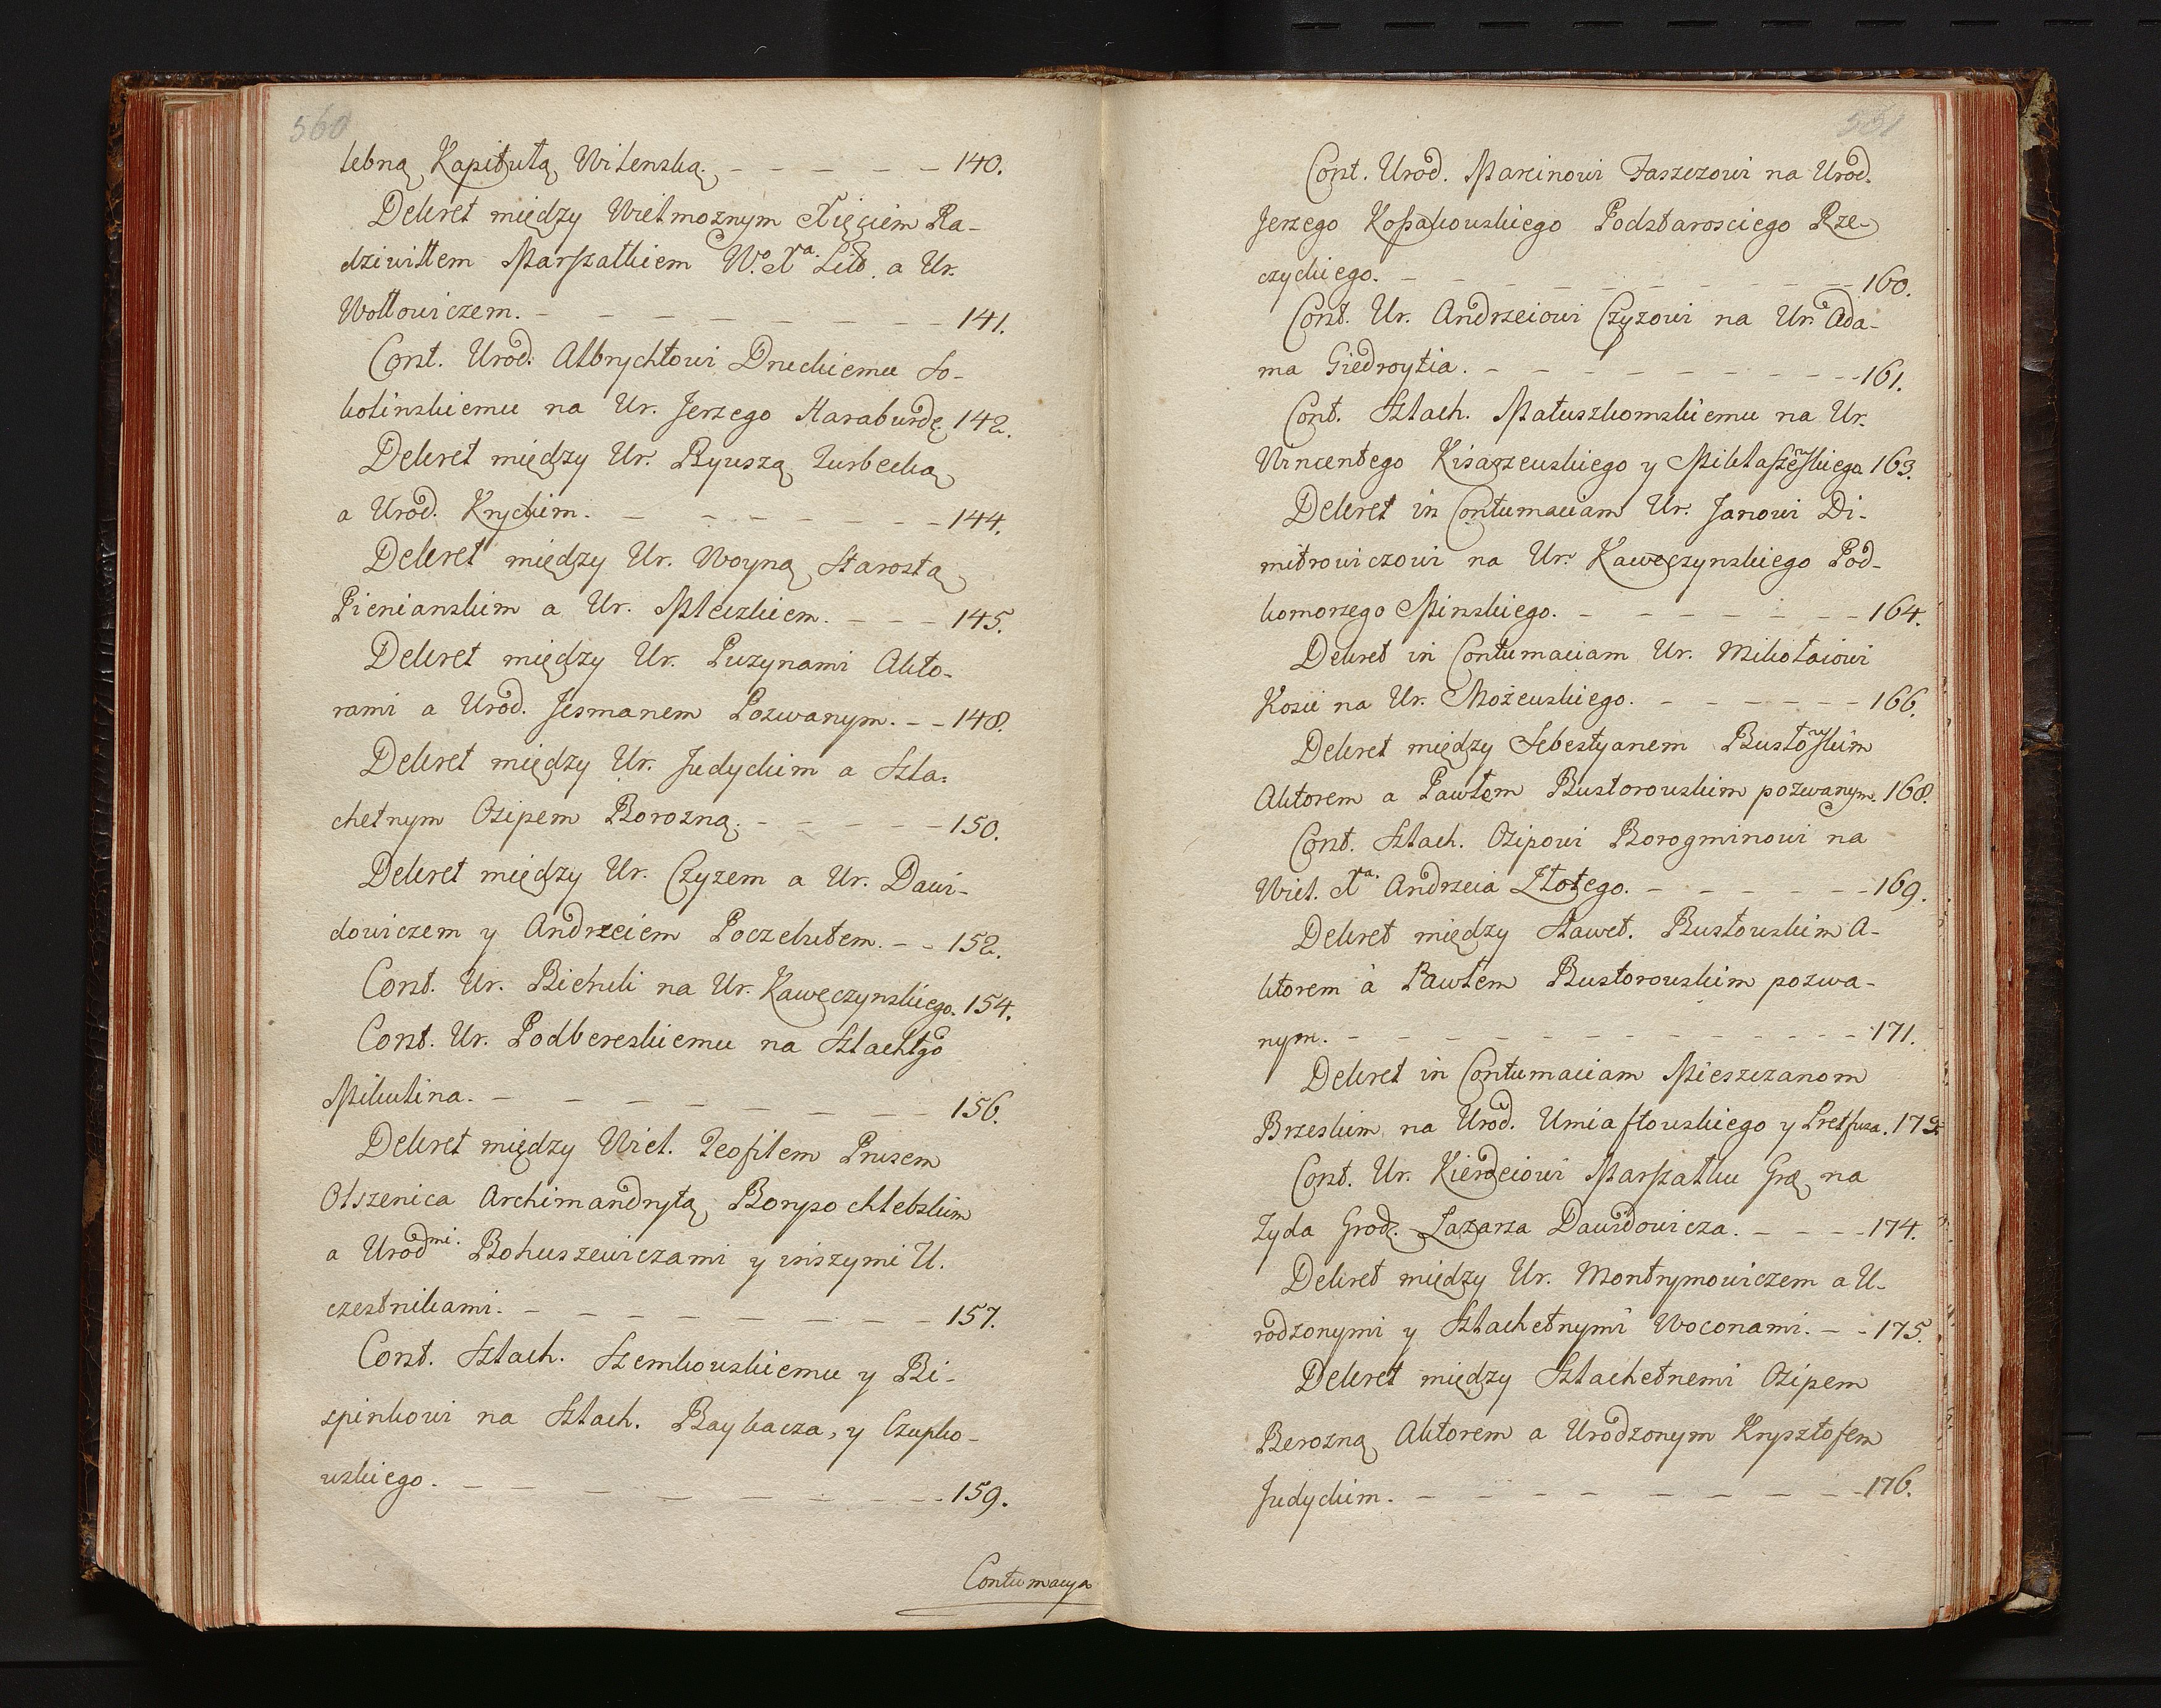 560
lebną Kapitułą Wilenską. — — — — — 140.
Dekret między Wielmoznym Xięciem Ra-
dziwiłłem Marszałkiem W.º Xª. Lit. a Ur.
Wołłowiczem. — — — — — — — — 141.
Cont. Urod. Albrychtowi Druckiemu So-
kolinskiemu na Ur. Jerzego Haraburdę. 142.
Dekret między Ur. Ryuszą Turbecką
a Urod. Knyckim. — — — — — — — 144.
Dekret między Ur. Woyną Starostą
Pienianskim a Ur. Mleczkiem. — — — 145.
Dekret między Ur. Puzynami Akto-
rami a Urod. Jesmanem Pozwanym. — — 148.
Dekret między Ur. Judyckim a Szla=
chetnym Ozipem Borozną. — — — — — 150.
Dekret między Ur. Czyzem a Ur. Dawi-
dowiczem y Andrzeiem Poczebutem. — — 152.
Cont. Ur. na Ur. Kawęczynskiego. 154.
Cont. Ur. Podbereskiemu na Szlachtgo
Mikulina. — — — — — — — — 156.
Dekret między Wiel. Teofilem Prusem
Olszenica Archimandrytą Borysochlebskim
a Urodmi. Bohuszewiczami y inszymi U.
czestnikami. — — — — — — — 157.
Cont. Szlach. Szemkowskiemu y Bi-
spinkowi na Szlach. Baykacza, y Czupko-
wskiego. — — — — — — — — 159.
Contumacya
561
Cont. Urod. Marcinowi Faszczowi na Urod.
Jerzego Kossakowskiego Podstarosciego Rze-
czyckiego. — — — — — — — — 160.
Cont. Ur. Andrzeiowi Czyzowi na Ur. Ada-
ma Giedroytia. — — — — — — — — 161.
Cont. Szlach. Matuszkomskiemu na Ur.
Vincentego Kisarzewskiego y 163.
Dekret in Contumaciam Ur. Janowi Di-
mitrowiczowi na Ur. Kawęczynskiego Pod-
komorzego Minskiego. — — — — — — 164.
Dekret in Contumaciam Ur. Mikołaiowi
Kosii na Ur. Możewskiego. — — — — — — 166.
Dekret między Sebestyanem
Aktorem a Pawłem Bustorowskim pozwanym. 168.
Cont. Szlach. Ozipowi Borogminowi na
Wiel. Xª. Andrzeia Złotego. — — — — — — 169.
Dekret między Sławet. Bustowskim A-
ktorem à Pawłem Bustorowskim pozwa-
nym. — — — — — — — — — — — 171.
Dekret in Contumaciam Mieszczanom
Brzeskim na Urod. Umiastowskiego y Pretfusa. 173.
Cont. Ur. Kierdeiowi Marszałku Grŏ na
Zyda Grodz. Łazarza Dawidowicza. — — — — 174.
Dekret między Ur. Montrymowiczem a U-
rodzonymi y Szlachetnymi Woconami. — — 175.
Dekret między Szlachetnemi Ozipem
Berozną Aktorem a Urodzonym Krysztofem
Judyckim. — — — — — — — — — 176.